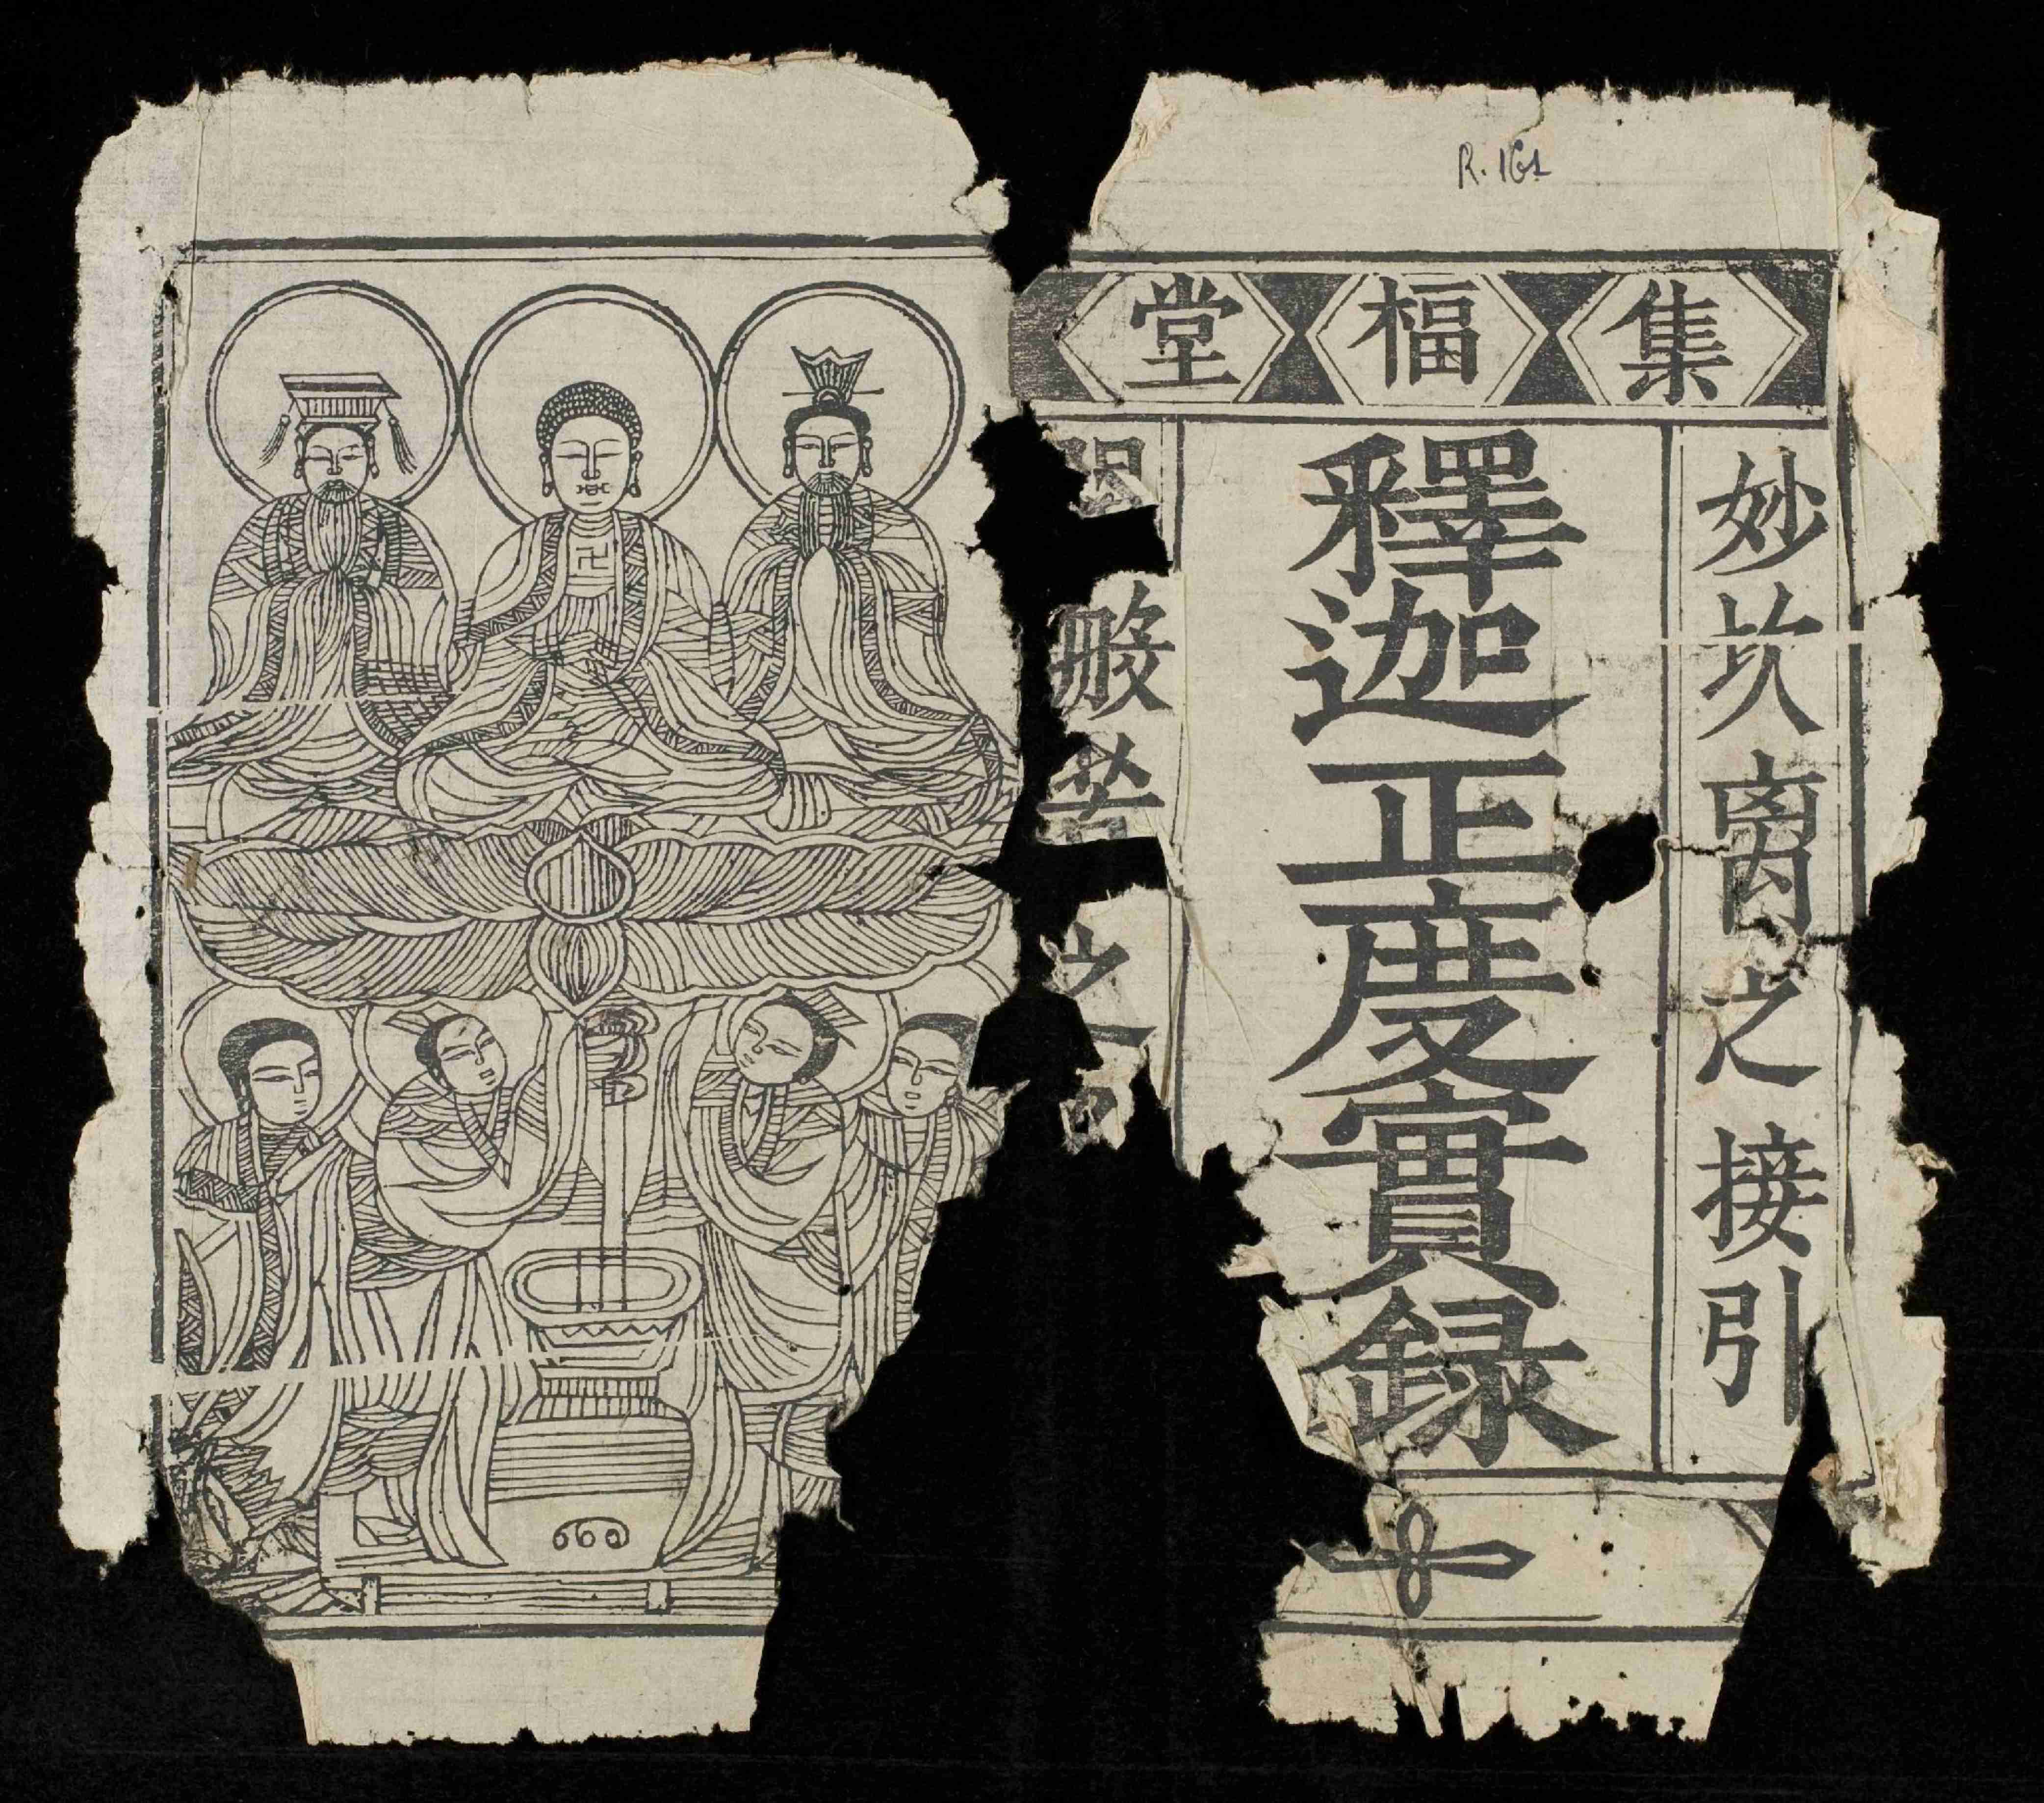 R. 161
集楅堂
妙坎离之接引
釋迦正度實録
之